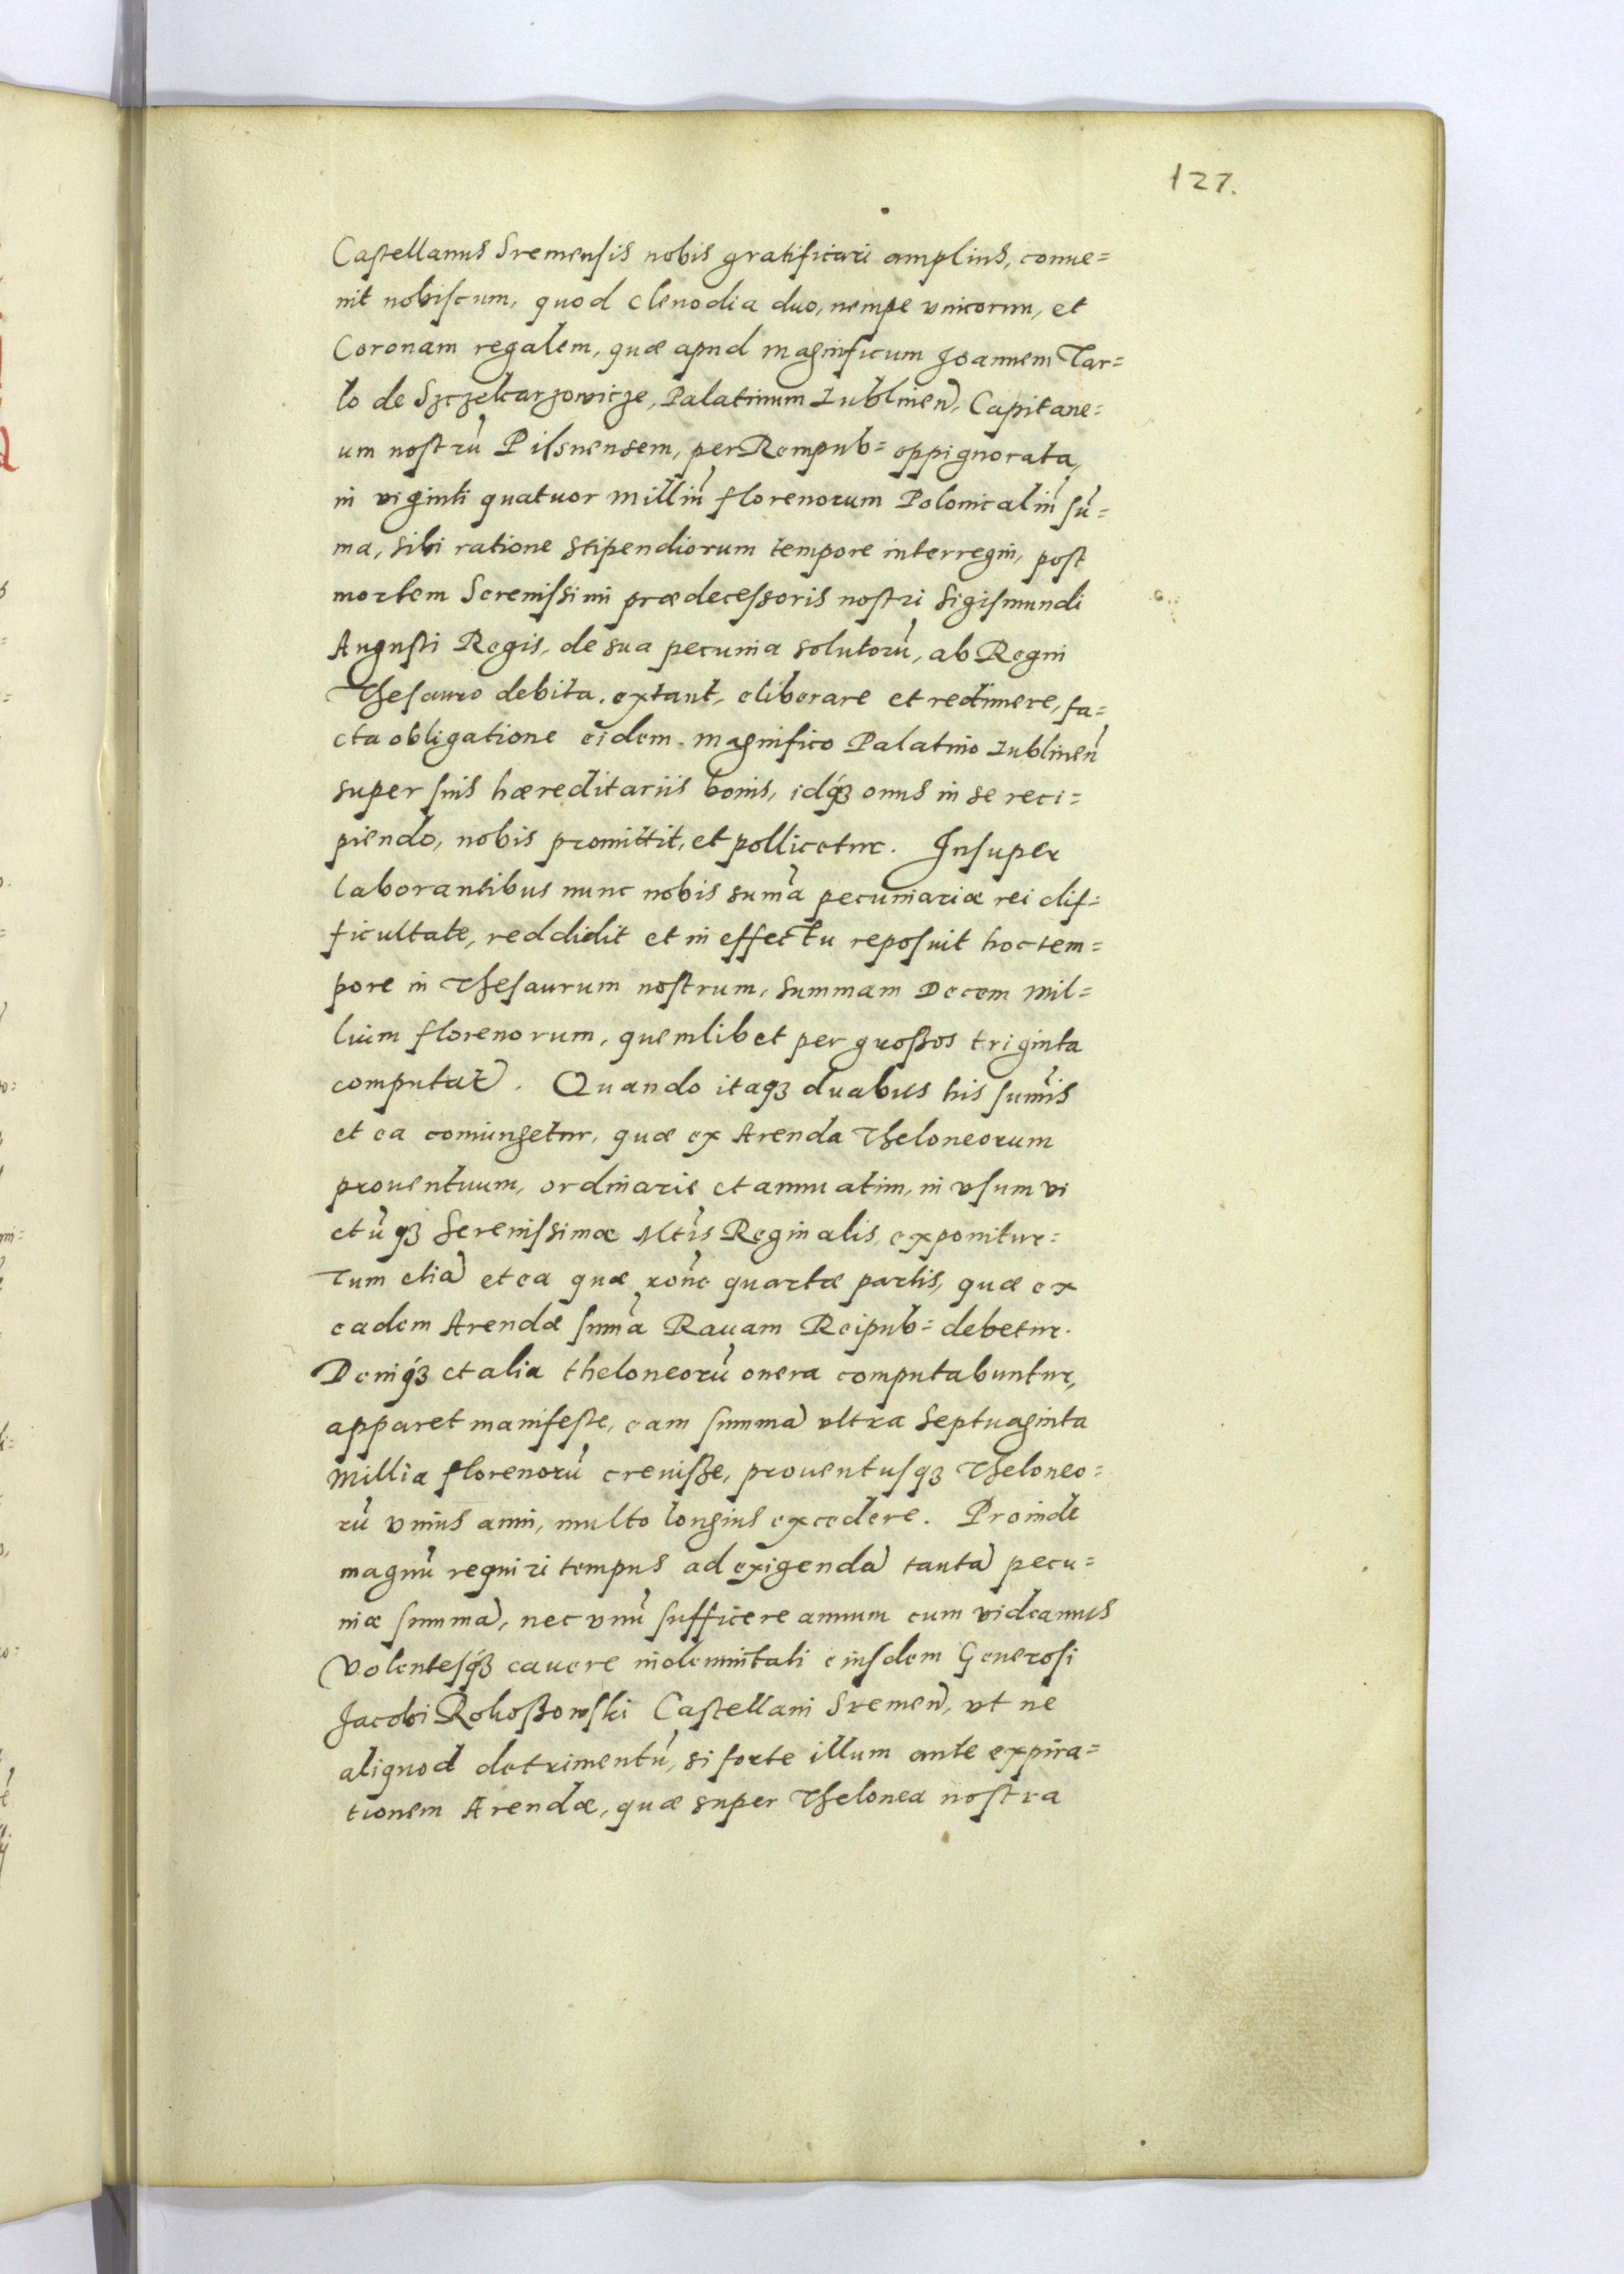 127.
Castellanus Sremensis nobis gratificari amplius, conue=
nit nobiscum, quod clenodia duo, nempe vnicorun, et
Coronam regalem, quæ apud magnificum Joannem Tar=
lo de Szczekarzowicze, Palatinum Lublineñ, Capitane=
um nostrũ Pilsnensem, per Rempub= oppignorata,
in viginti quatuor milliũ florenorum Polonicaliũ sũ=
ma, sibi ratione stipendiorum tempore interregni, post
mortem Serenissimi prædecessoris nostri Sigismundi
Augusti Regis, de sua pecunia solutorũ, ab Regni
Thesauro debita, extant, eliberare et redimere, fa=
cta obligatione eidem magnifico Palatino Lublineñ
super suis hæreditariis bonis, idq3 onus in se reci=
piendo, nobis promittit, et pollicetur. Insuper
laborantibus nunc nobis sum̃a pecuniariæ rei dif=
ficultate, reddidit et in effectu reposuit hoc tem=
pore in Thesaurum nostrum, summam Decem mil=
lium florenorum, quemlibet per grossos triginta
computat̃. Quando itaq3 duabus his sum̃is
et ea coniungetur, quæ ex Arenda Theloneorum
prouentuum, ordinarie et annuatim, in vsum vi
ctũq3 Serenissimæ Mt̃is Reginalis, exponitur=
Tum etiã et ea quæ roñe quartæ partis, quæ ex
eadem Arendæ sum̃a Rauam Reipub= debetur.
Deniq3 et alia theloneorũ onera computabuntur,
apparet manifeste, eam summã vltra Septuaginta
Millia florenorũ creuisse, prouentusq3 Theloneo=
rũ vnius anni, multo longius excedere. Proinde
magnũ requiri tempus ad exigendã tantã pecu=
niæ summã, nec vnũ sufficere annum cum videamus
Volentesq3 cauere indemnitati eiusdem Generosi
Jacobi Rokossowski Castellani Sremeñ, vt ne
aliquod detrimentũ, si forte illum ante expira=
tionem Arendæ, quæ super Thelonea nostra